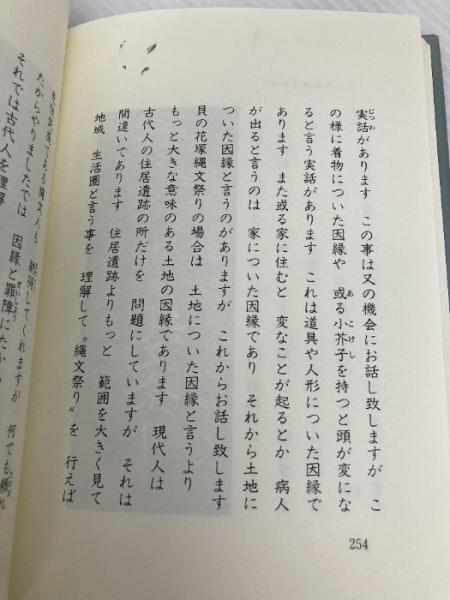 実話があります この事は又の機会にお話し致しますが こ
の様に着物についた因縁や 或る小芥子を持つと頭が変にな
ると言う実話があります これは道具や人形についた因縁で
あります また或る家に住むと 変なことが起るとか 病人
が出ると言うのは 家についた因縁であり それから土地に
ついた因縁と言うのがありますが これからお話し致します
貝の花塚縄文祭りの場合は 土地についた因縁と言うより
もっと大きな意味のある土地の因縁であります 現代人は
古代人の住居遺跡の所だけを 問題にしていますが それは
間違いであります 住居遺跡よりもっと 範囲を大きく見て
地域 生活圏と言う事を 理解して〝縄文祭り〟を 行えば
254
してくれますが 何でも
たからやりましたでは 因縁と罪障にたか
それでは古代人を理解